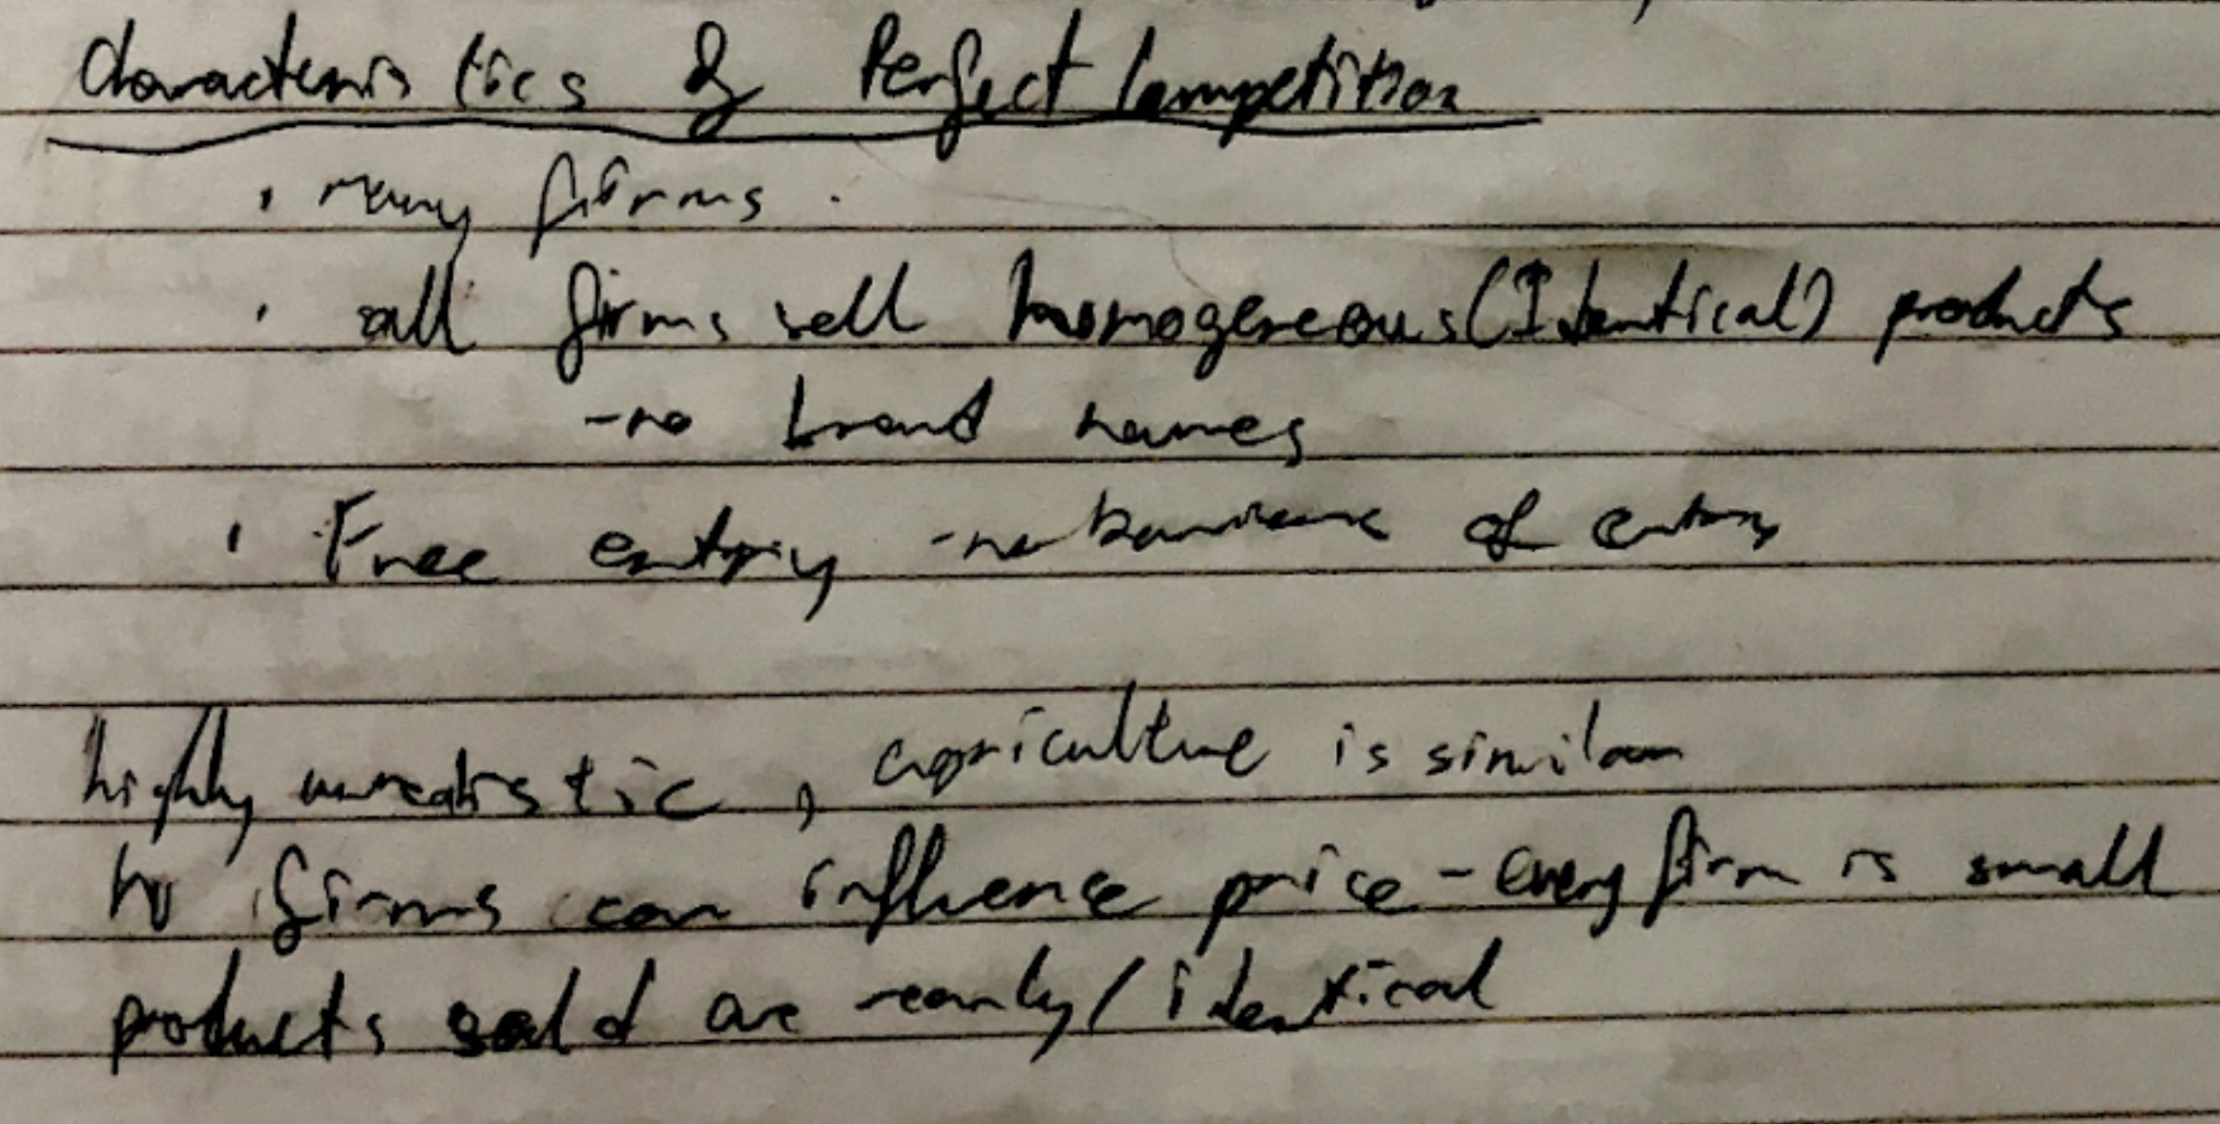 Characteristics of Perfect Competition
• many firms.
• all firms sell homogeneous (Identical) products
- no brand names
• Free entry - no barriers of entry
highly unrealistic, agriculture is similar
no firms can influence price - every firm is small
products sold are nearly / identical